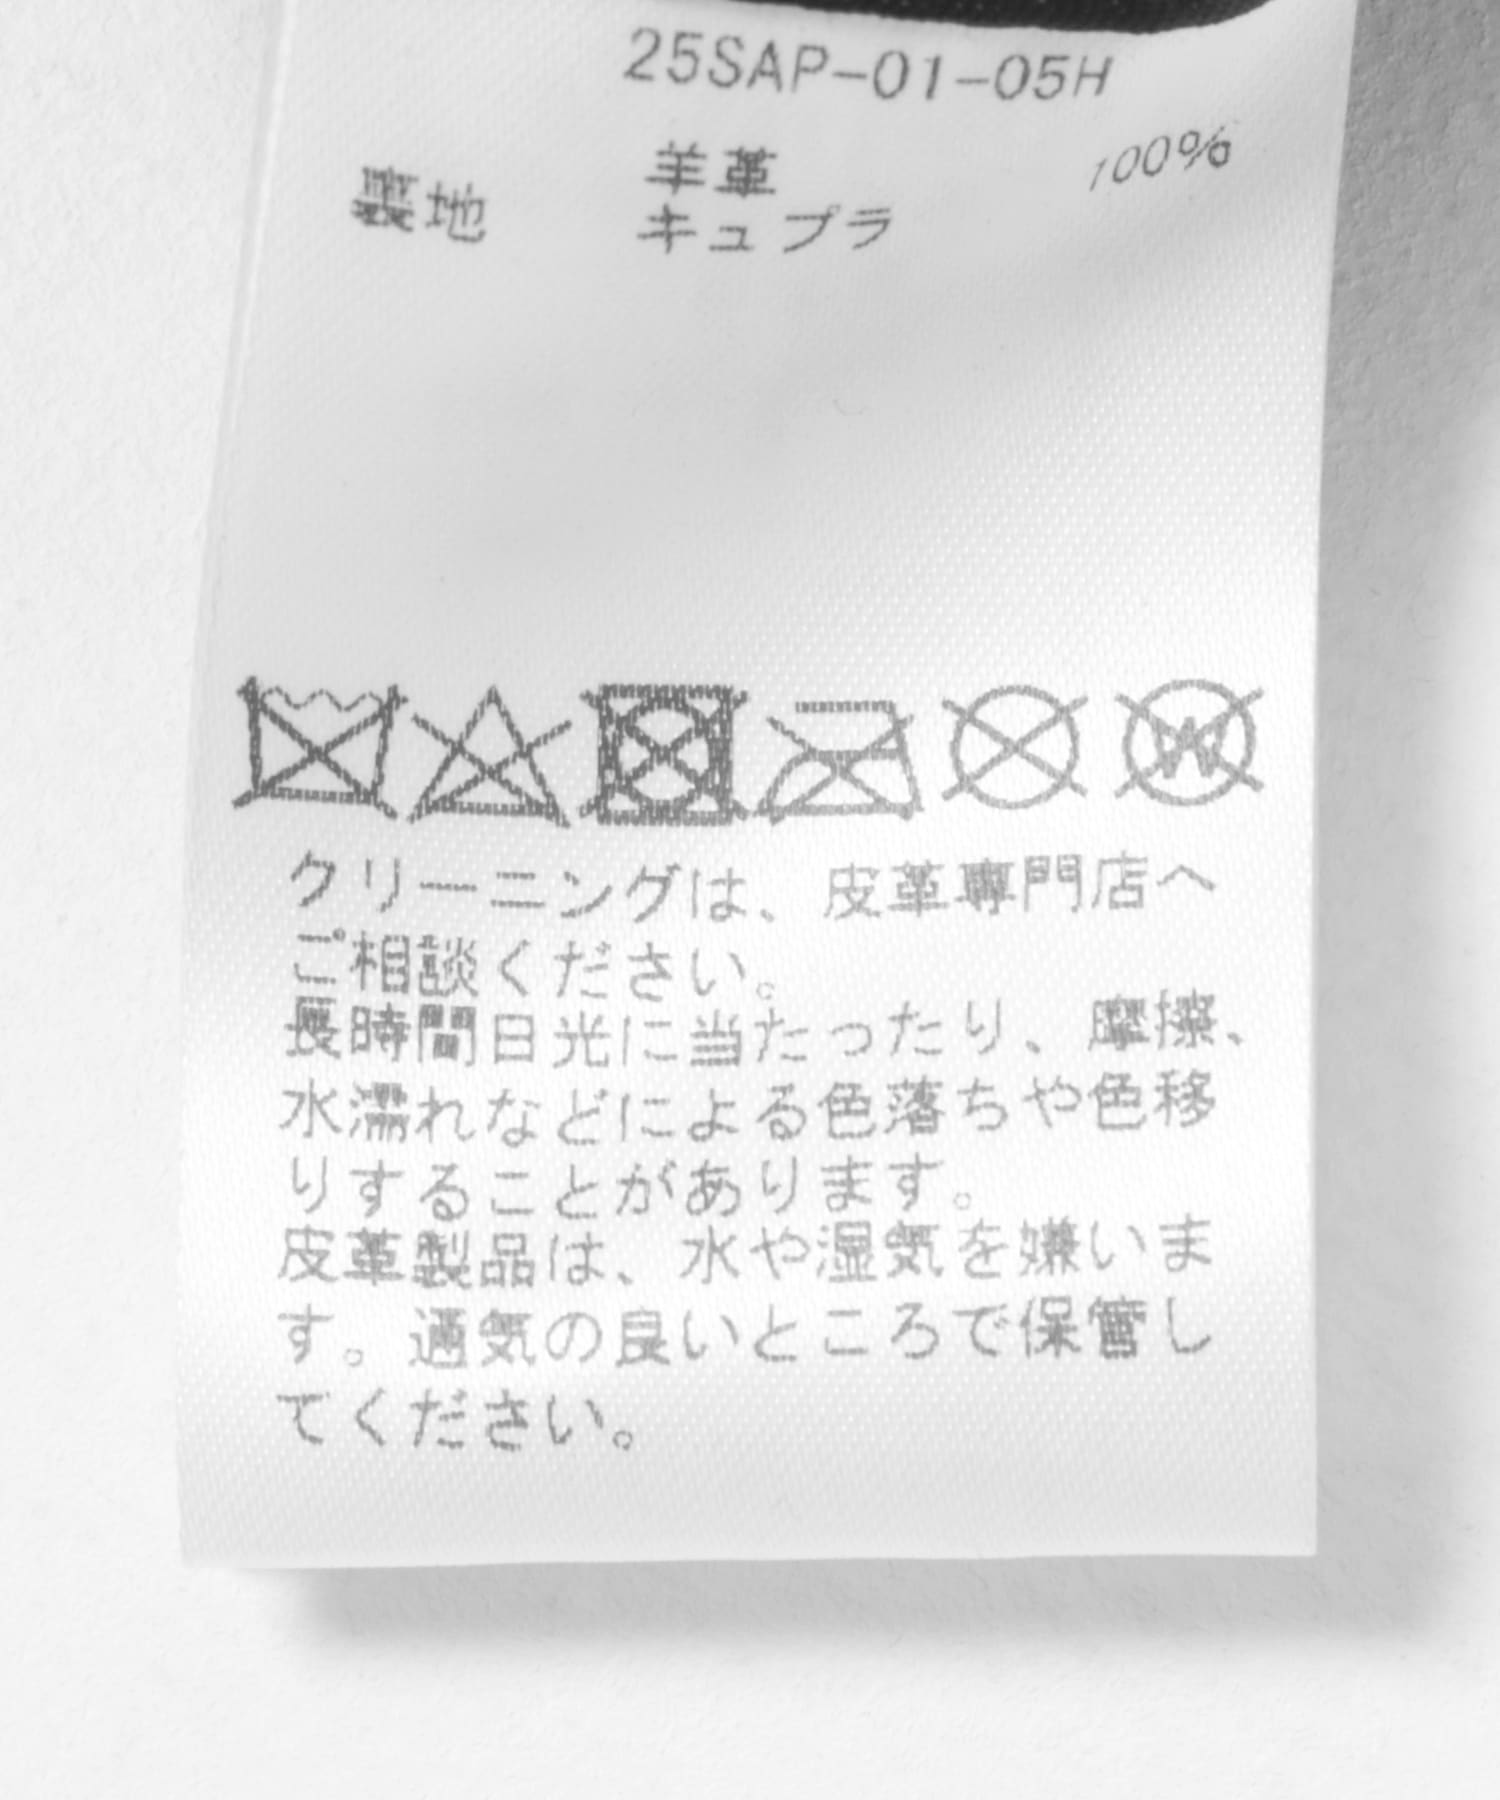 25SAP-01-05H
羊革 100%
裏地 キュプラ
W
クリーニングは、皮革専門店へ
ご相談ください。
長時間日光に当たったり、摩擦、
水濡れなどによる色落ちや色移
りすることがあります。
皮革製品は、水や湿気を嫌いま
す。通気の良いところで保管し
てください。